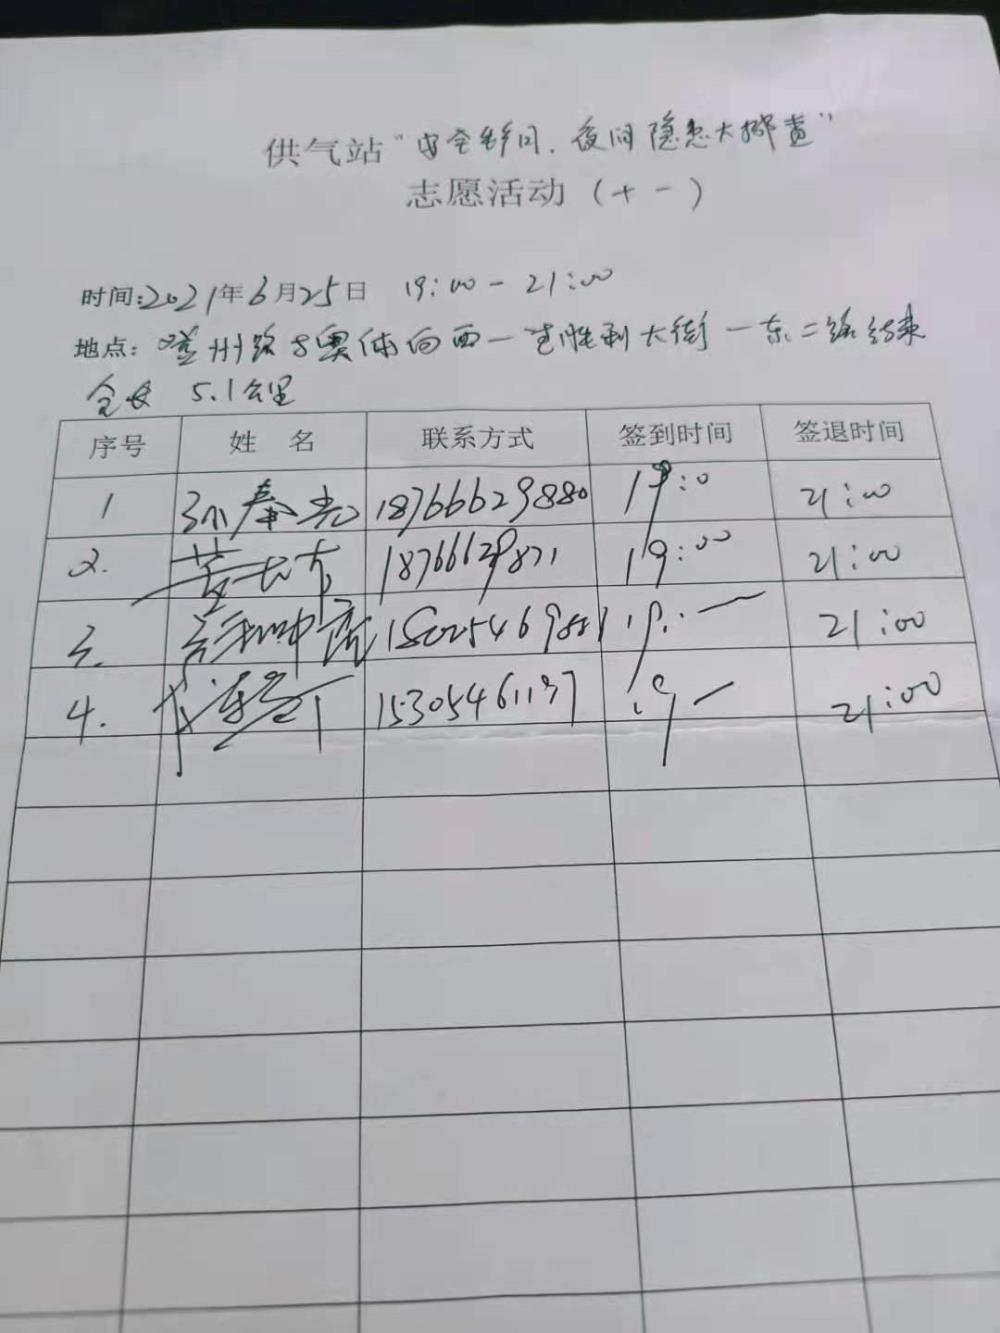 供气站"安全我同、夜间隐患大排查"
志愿活动（十一）
时间:2021年6月25日 19:00-21:00
地点：州路与奥体向西一胜利大街一东二路结束
全长 5.1公里
序号 姓名 联系方式 签到时间 签退时间
1 孙春光 18766629880 19:0 21:00
2. 18766629871 19:00 21:00
3. 19:一 21:00
4. 15305461197 19一 21:00